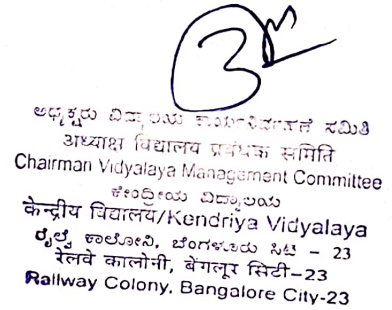 ಅಧ್ಯಕ್ಷರು ವಿದ್ಯಾಲಯ ಕಾರ್ಯನಿರ್ವಹಣೆ ಸಮಿತಿ
अध्याक्ष विद्यालय प्रबंधक समिति
Chairman Vidyalaya Management Committee
ಕೇಂದ್ರೀಯ ವಿದ್ಯಾಲಯ
केन्द्रीय विद्यालय/Kendriya Vidyalaya
ರೈಲ್ವೆ ಕಾಲೋನಿ, ಬೆಂಗಳೂರು ಸಿಟಿ - 23
रेलवे कालोनी, बेंगलूर सिटी-23
Railway Colony, Bangalore City-23